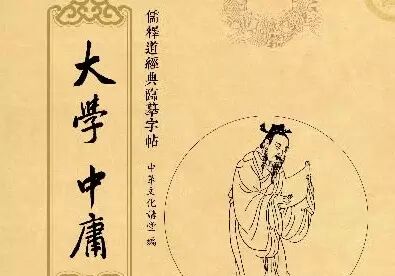 儒釋道經典臨摹字帖
大學 中庸
中華文化講堂 編